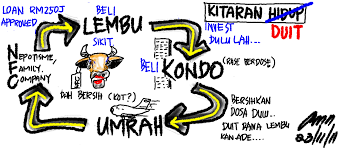 LOAN RM250J
APPROVED
BELI
LEMBU
SIKIT
KITARAN HIDUP
DUIT
INVEST
DULU LAH...
NEPOTISME,
FAMILY,
COMPANY
BELI
KONDO
DAH BERSIH (KOT?)
UMRAH
BERSIHKAN
DOSA DULU...
DUIT MANA LEMBU
KAN ADE...
23/11/11